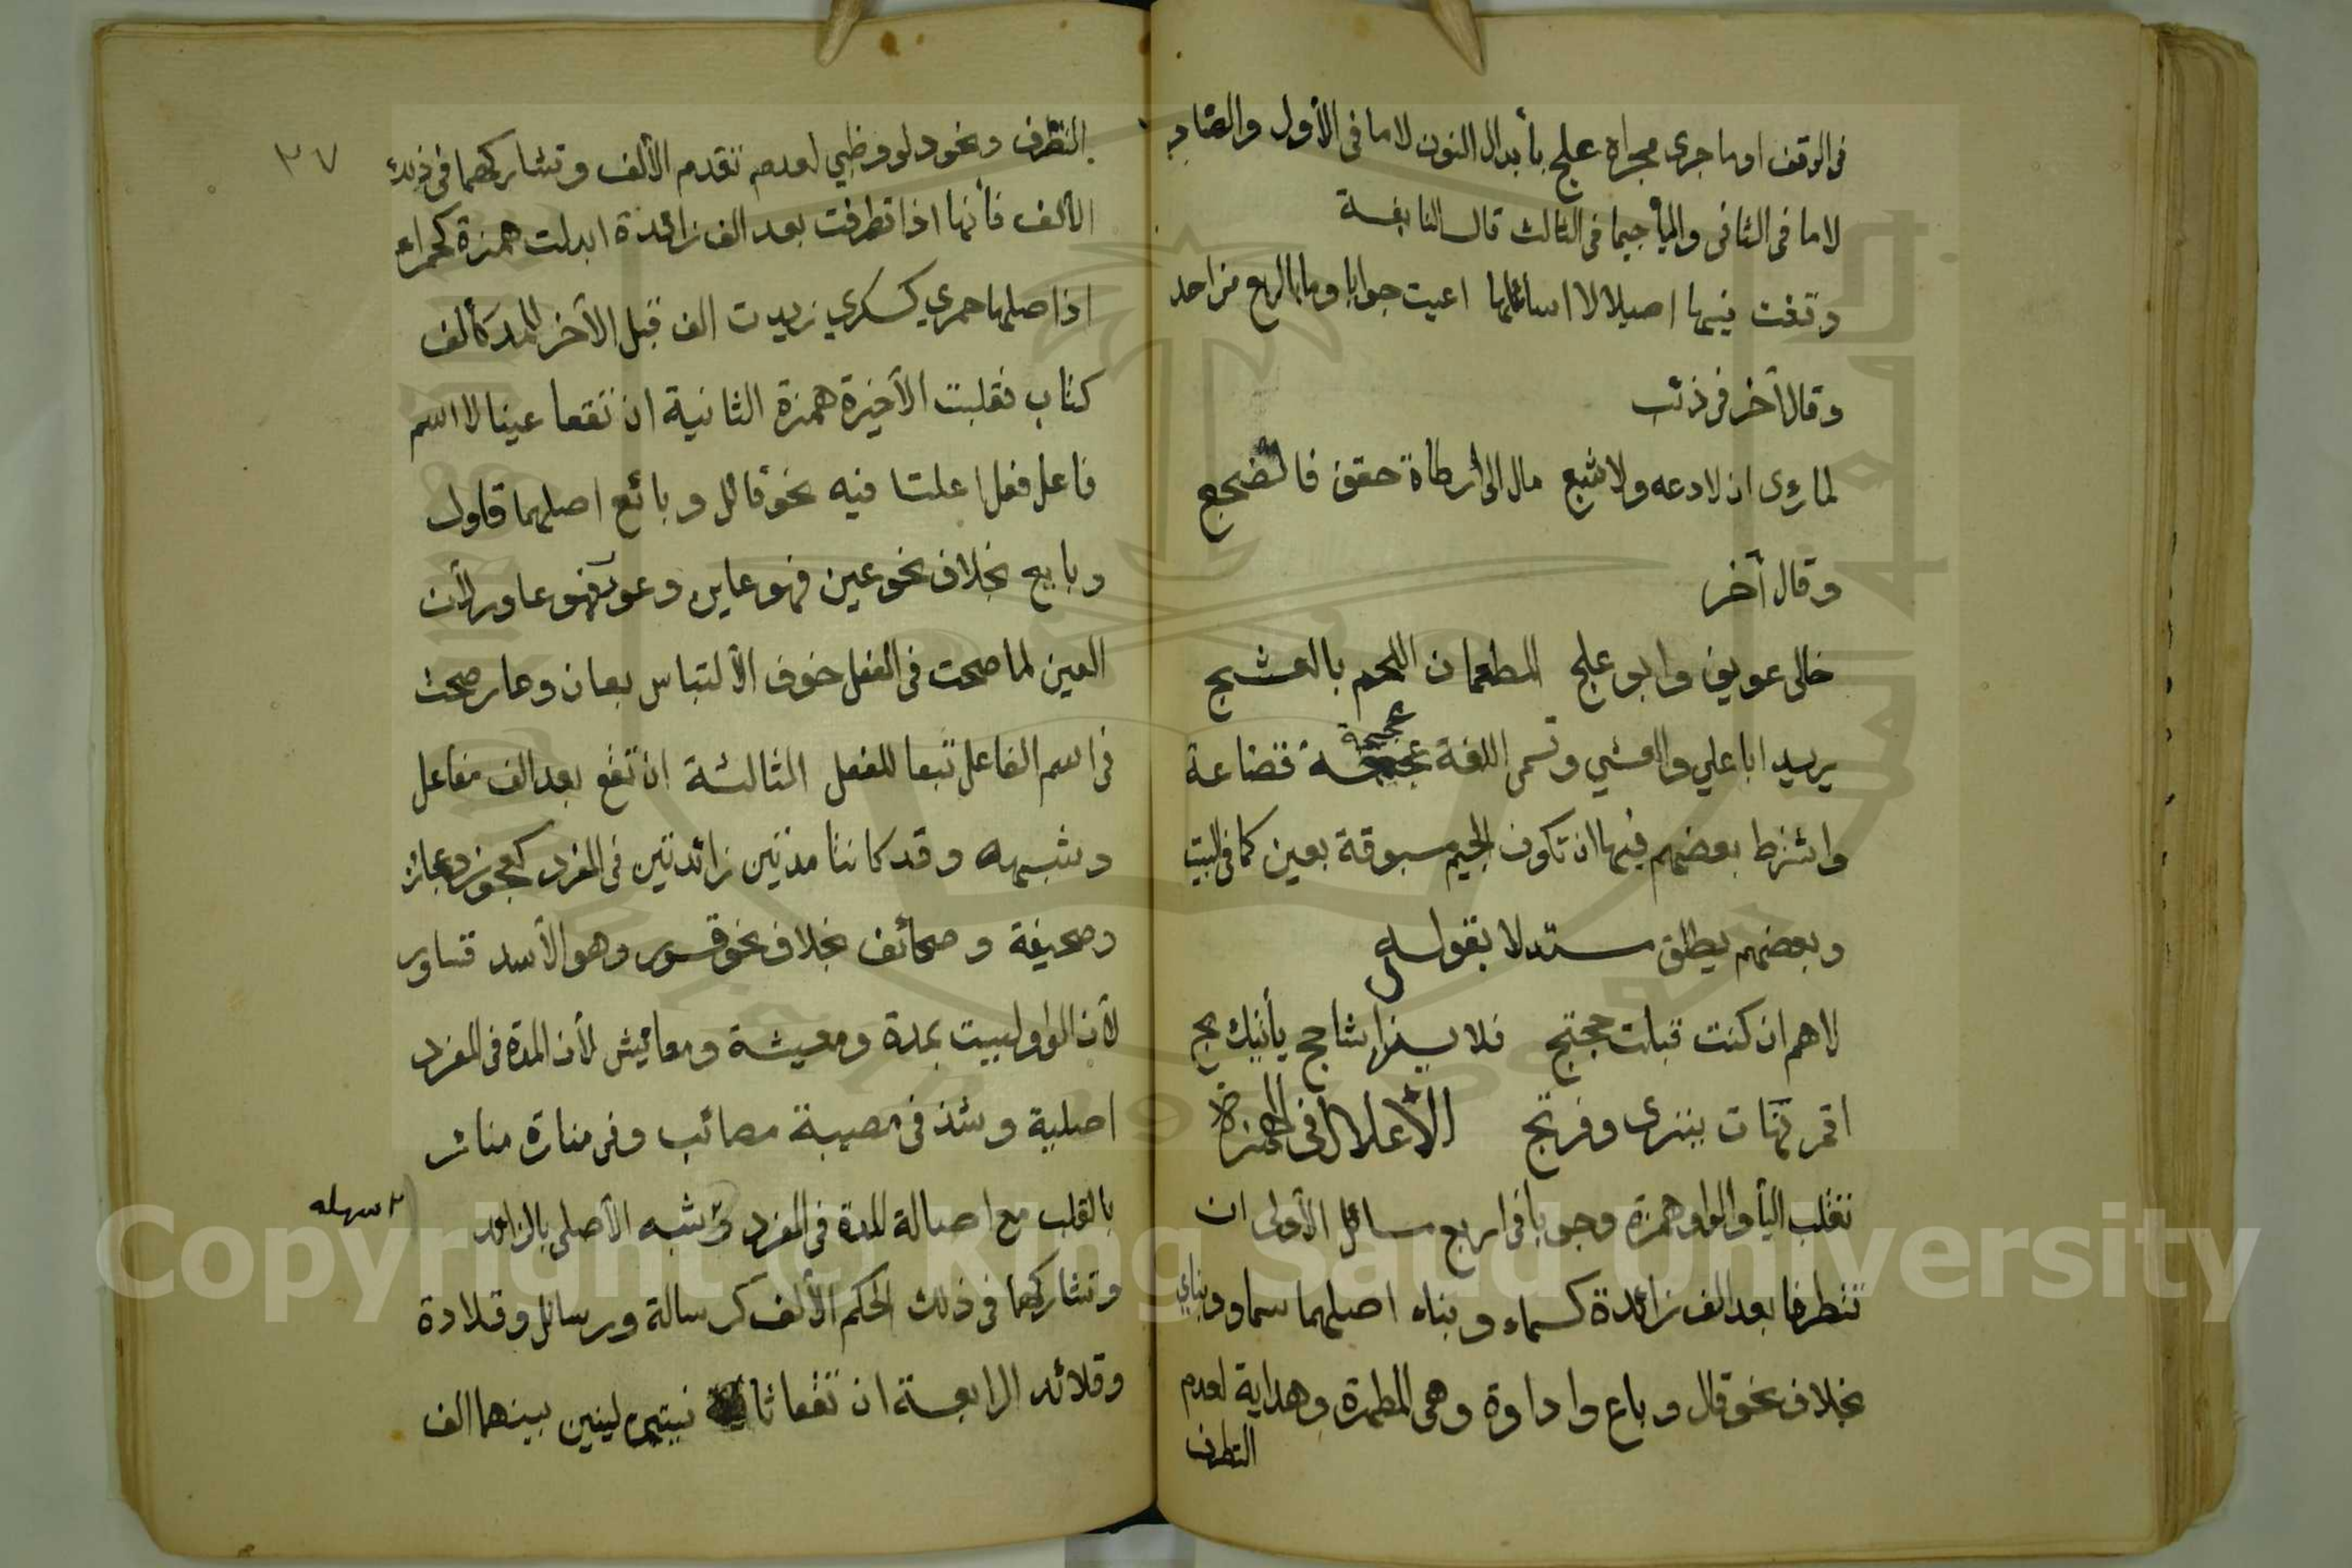 فى الوقف او ما جرى مجراه علج بأبدال النون لاما فى الأول والضاد
لاما فى الثانى واليأ جيما فى الثالث قال النابغة
وقفت فيها اصيلالا اسائلها اعيت جوابا وما بالربع من احد
وقال آخر فى ذئب
لما رءى ان لا دعه ولا شبع مال الى أرطاة حقف فالضجع
وقال آخر
خالى عويف وابو علج المطعمان اللحم بالعشج
يريد ابا علي والعشي وتسمى اللغة عجعجة قضاعة
واشترط بعضهم فيها ان تكون الجيم مسبوقة بعين كما فى البيت
وبعضهم يطلق مستدلا بقوله
لاهم ان كنت قبلت حجتج فلا يزال شاحج يأتيك بج
اقمر نهات ينزى وفرتج الأعلال فى الهمزة
تقلب اليأ والواو همزة وجوبا فى اربع مسائل الأولى ان
تتطرفا بعد الف زائدة كسماء وبناء اصلهما سماو وبناي
بخلاف نحو قال وباع واداوة وهى المطهرة وهداية لعدم
التطرف
٣٧
التطرف ونحو دلو وظبي لعدم تقدم الألف وتشاركهما فى ذلك
الألف فأنها اذا تطرفت بعد الف زائدة ابدلت همزة كحمراء
اذ اصلها حمرى كسكرى زيدت الف قبل الآخر للمد كألف
كتاب فقلبت الأخيرة همزة الثانية ان تقعا عينا لاسم
فاعل فعل اعلتا فيه نحو قائل وبائع اصلهما قاول
وبايع بخلاف نحو عين فهو عاين وعور فهو عاور لأن
العين لما صحت فى الفعل خوف الألتباس بعان وعار صحت
فى اسم الفاعل تبعا للفعل الثالثة ان تقع بعد الف مفاعل
وشبهه وقد كانتا مدتين زائدتين فى المفرد كعجوز وعجائز
وصحيفة وصحائف بخلاف نحو قسور وهو الأسد قساور
لأن الواو ليست بمدة ومعيشة ومعايش لأن المدة فى المفرد
اصلية وشذ فى مصيبة مصائب وفى منارة منائر
بالقلب مع اصالة المدة فى المفرد وشبه الأصلى بالزائد
وتشاركهما فى ذلك الحكم الألف كرسالة ورسائل وقلادة
وقلائد الرابعة ان تقعا لينين بينهما الف
Copyright © King Saud University